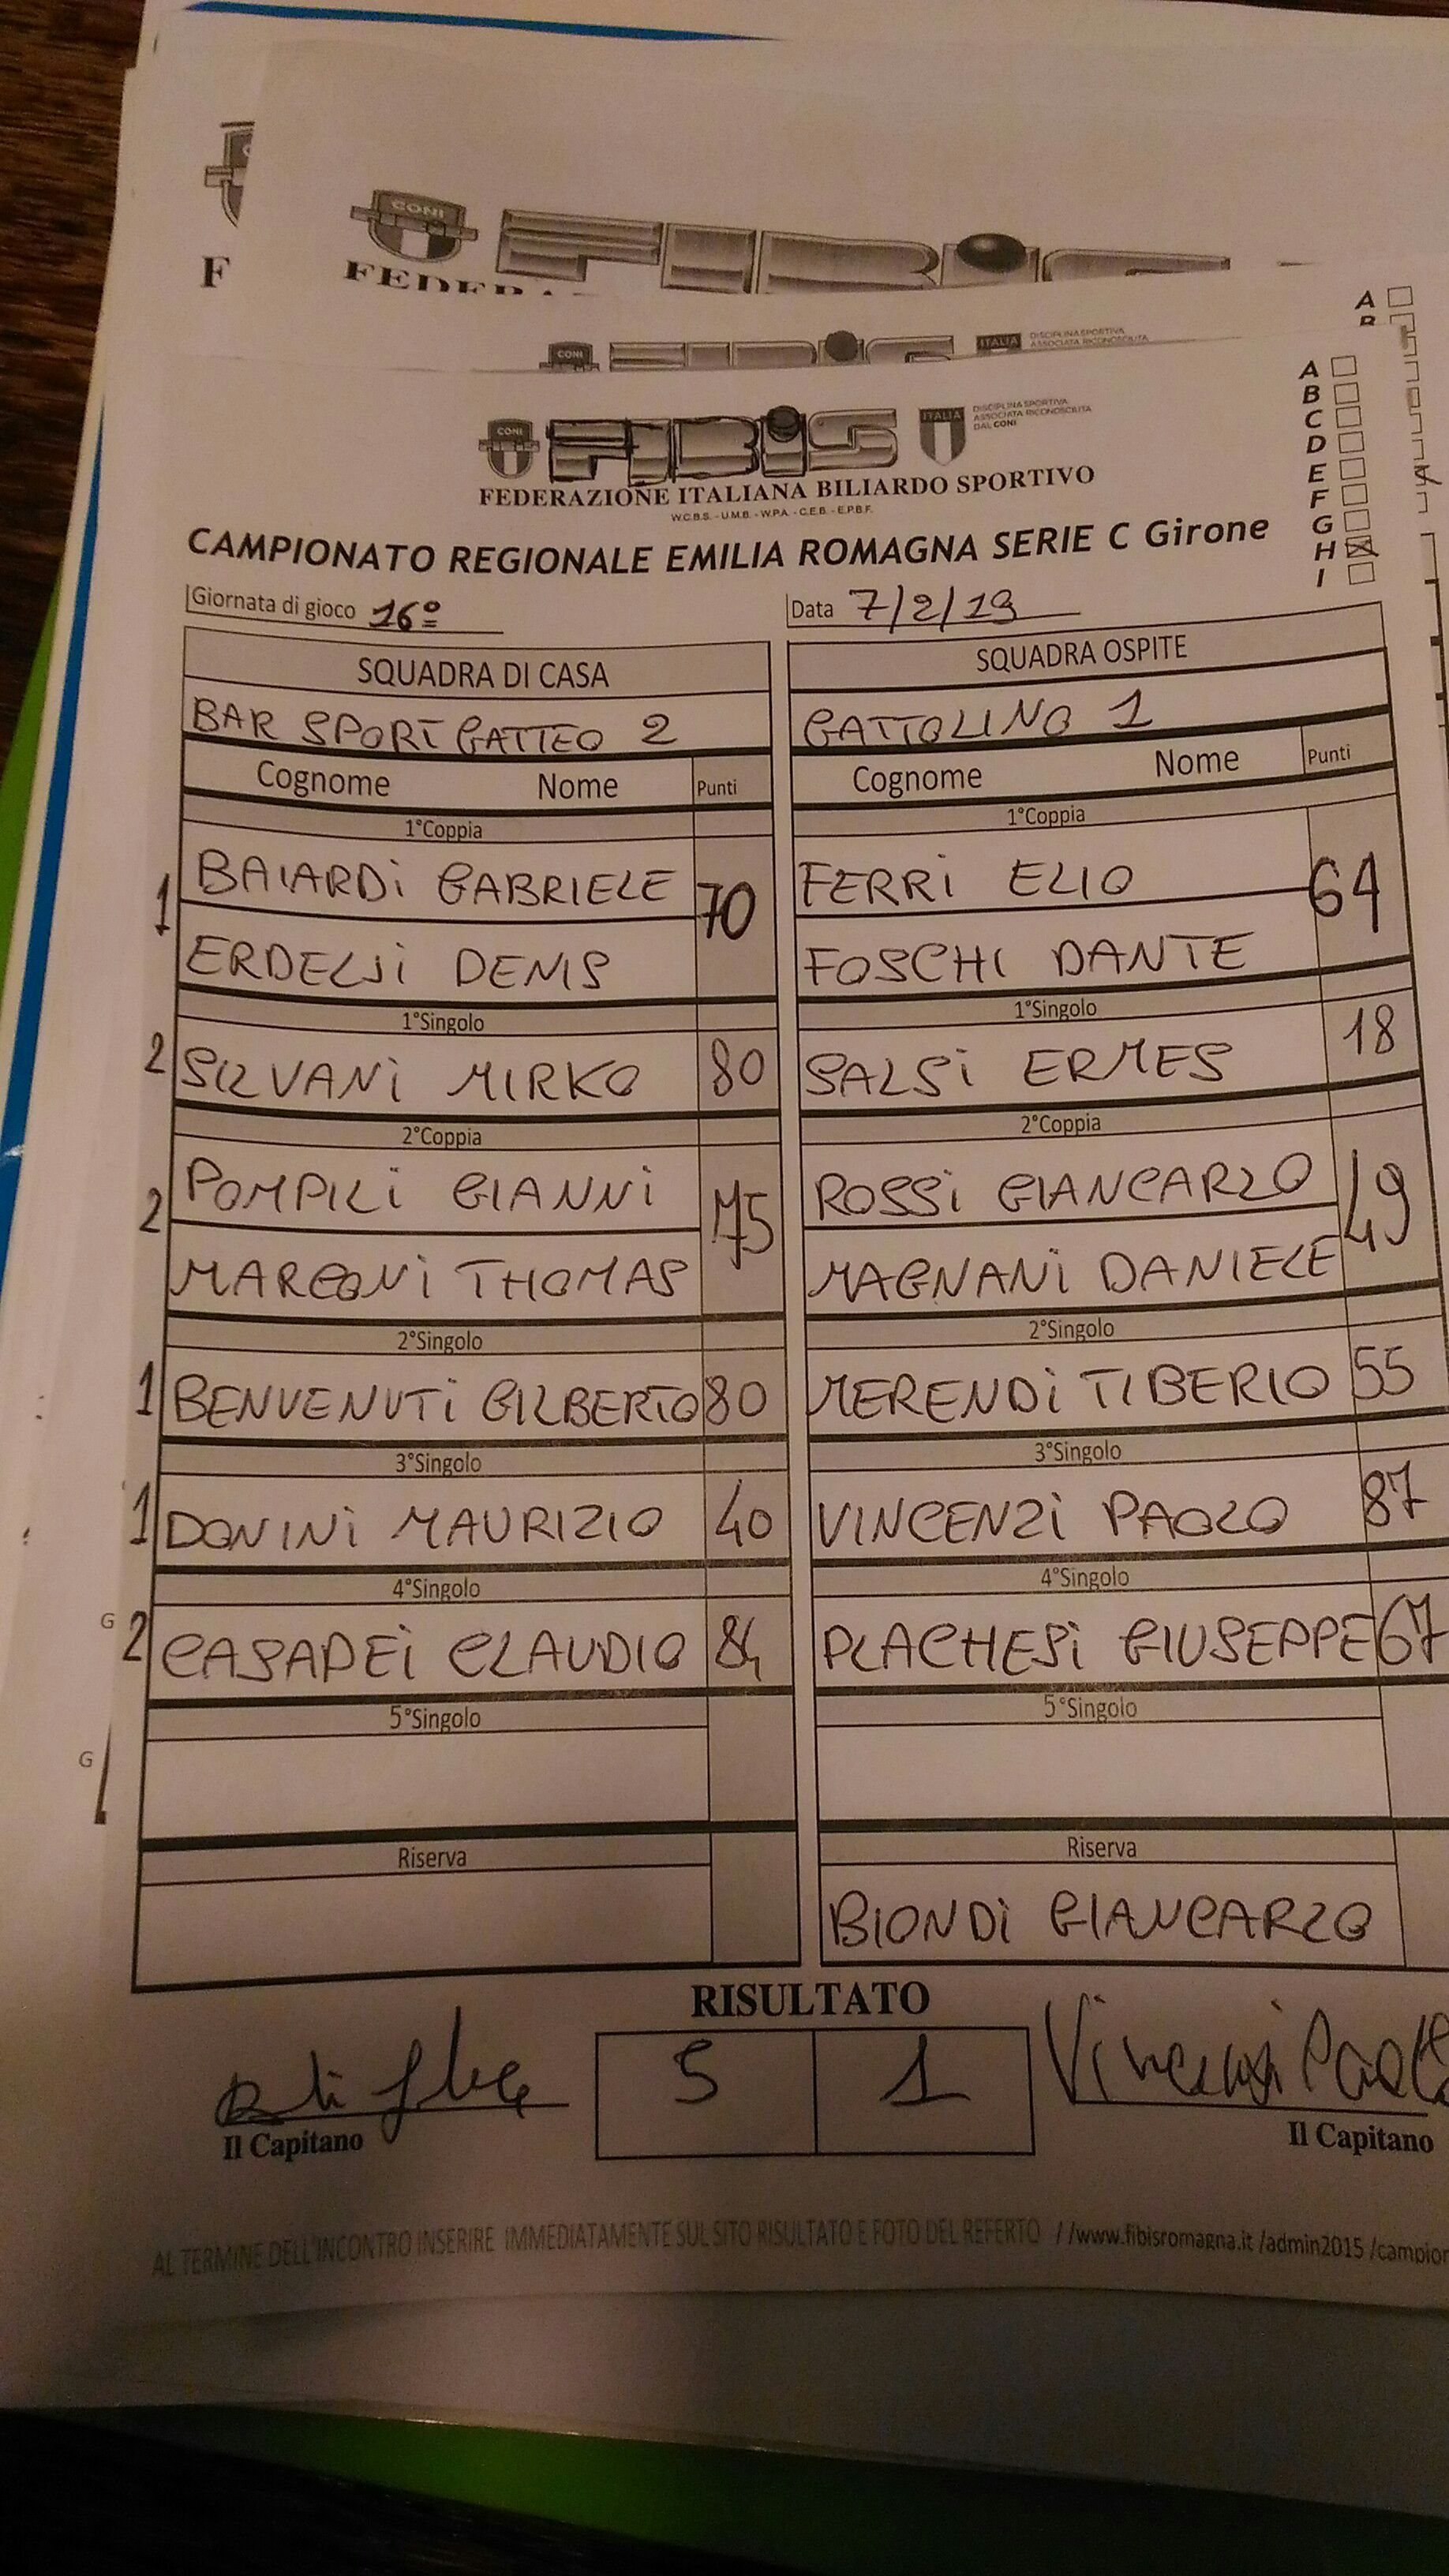 F
CONI
FEDERA
CONI FIBiS ITALIA DISCIPLINA SPORTIVA
ASSOCIATA RICONOSCIUTA
A
CONI FIBiS ITALIA DISCIPLINA SPORTIVA
ASSOCIATA RICONOSCIUTA
DAL CONI
FEDERAZIONE ITALIANA BILIARDO SPORTIVO
W.C.B.S. - U.M.B. - W.P.A. - C.E.B. - E.P.B.F.
A
B
C
D
E
F
G
H
I
CAMPIONATO REGIONALE EMILIA ROMAGNA SERIE C Girone
Giornata di gioco 16º Data 7/2/19
SQUADRA DI CASA SQUADRA OSPITE
BAR SPORT GATTEO 2 GATTOLINO 1
Cognome Nome Punti Cognome Nome Punti
1°Coppia 1°Coppia
1 BAIARDi GABRIELE 70 FERRi ELIO 64
DENIS FOSCHI DANTE
1°Singolo 1°Singolo
2 SILVANi MIRKO 80 SALSi ERMES 18
2°Coppia 2°Coppia
2 POMPILi GIANNi 75 ROSSi GIANCARLO 49
MARCONi THOMAS MAGNANi DANIELE
2°Singolo 2°Singolo
1 BENVENUTi GILBERTO 80 MERENDi TIBERIO 55
3°Singolo 3°Singolo
1 DONINi MAURIZIO 40 VINCENZi PAOLO 87
4°Singolo 4°Singolo
G 2 CASADEi CLAUDIO 84 PLACHESi GIUSEPPE 67
5°Singolo 5°Singolo
G
Riserva Riserva
BIONDi GIANCARLO
RISULTATO
5 1 Vincenzi Paolo
Il Capitano Il Capitano
AL TERMINE DELL'INCONTRO INSERIRE IMMEDIATAMENTE SUL SITO RISULTATO E FOTO DEL REFERTO //www.fibisromagna.it /admin2015 /campion